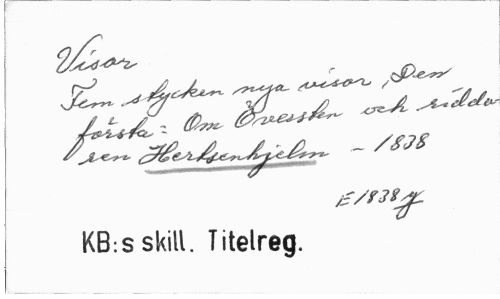 Visor
Fem stycken nya visor, Den
första: Om Övessten och ridda-
ren Hertsenhjelm - 1838
E 1838 g
KB:s skill. Titelreg.